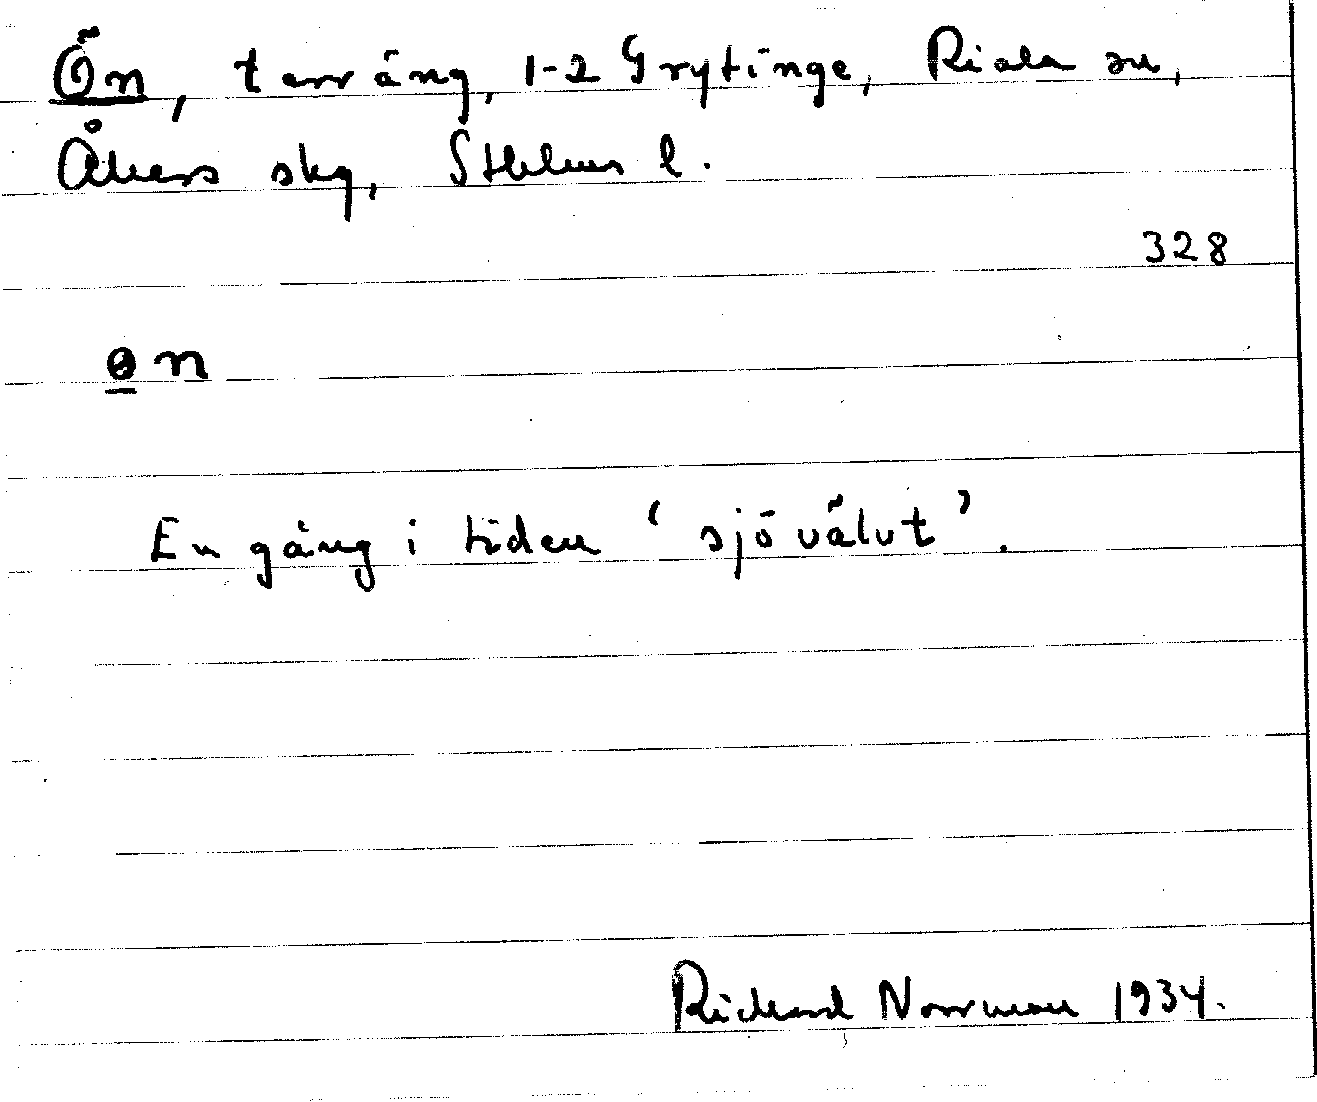 Ön, terräng, 1-2 Grytinge, Riala sn,
Åkers skg, Sthlms l.
328
ɵn
En gång i tiden 'sjövälvt'.
Richard Norrman 1934.